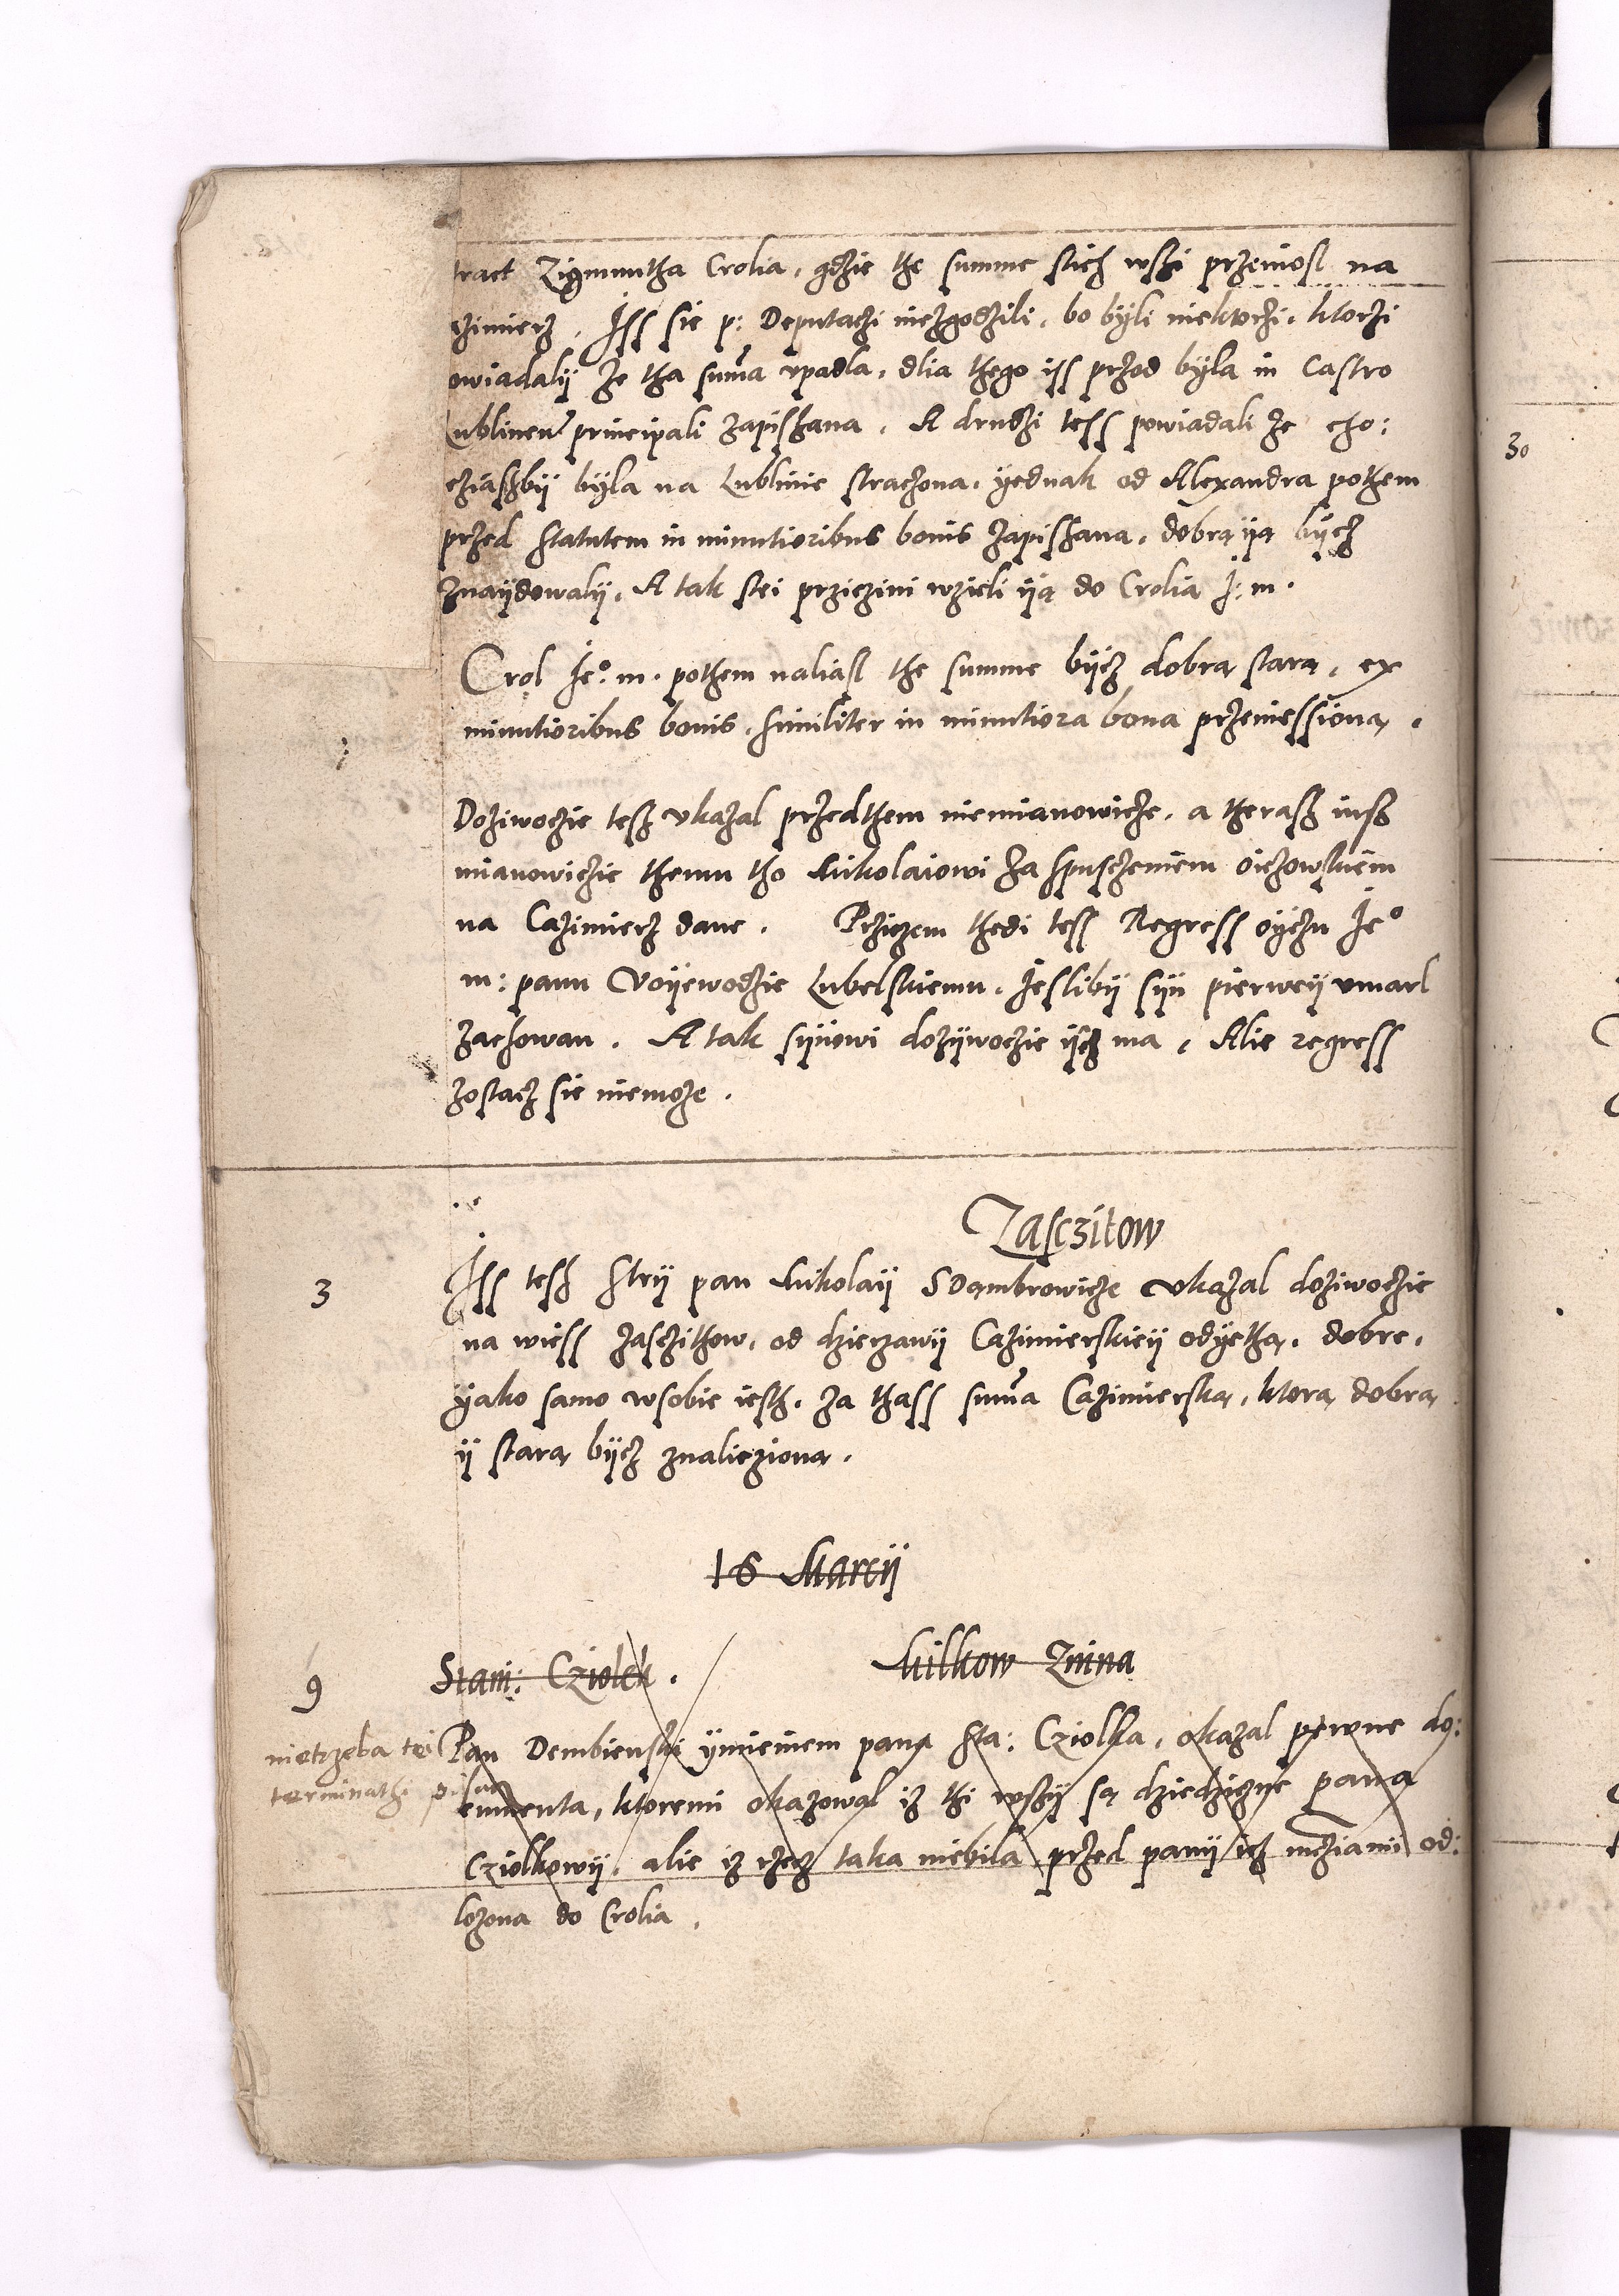 tract Zigmuntha Crolia, gdzie the summe stich wszi przeniosl na
zimierz. Iss sie p: Deputaczi niezgodzili, bo byli niektorzi, ktorzi
owiadalÿ że tha suma vpadla, dlia thego iss przed byla in Castro
Lublinen principali zapiszana, A drudzi tess powiadali że cho:
cziaszbÿ bÿla na Lublinie straczona, ÿednak od Alexandra pothem
przed statutem in minutioribus bonis zapiszana, dobrą ÿą bÿcz
znaÿdowalÿ, A tak stei prziczini wzieli ÿą do Crolia J: m.
Crol Je°: m. pothem naliasl the summe bÿcz dobrą starą, ex
minutioribus bonis, similiter in minutiora bona przeniessioną.
Doziwoczie tesz vkazal przedthem niemianowicze, a therasz iusz
mianowiczie themu tho Mikolaiowi za spusczeniem oiczowskiem
na Cazimierz dane. Prziczem thedi tess Regress oÿczu Je°
m: panu Voÿewodzie Lubelskiemu, Jeslibÿ sÿn pierweÿ vmarl
zachowan. A tak sÿnowi dozÿwoczie ÿscz ma, Alie regress
zostacz sie niemoże.
Zasczitow
3
Iss tesz Strÿ pan Mikolaÿ S Dambrowicze vkazal doziwoczie
na wiess zasczithow, od dzierzawÿ Cazimierskieÿ odÿethą, dobre,
ÿako samo wsobie iesth, za thass suma Cazimierską, ktorą dobrą
ÿ starą bÿcz znalieziona.
16 Marcÿ
9
Stani: Cziolek. Milkow Znina
nietrzeba tei
terminathi pisac
Pan Dembienski ÿmieniem pana Sta: Cziolka, okazal pewne do:
cumenta, ktoremi okazowal iz thi wszÿ są dziedzizne pana
Cziolkowÿ, alie iz rzecz taka niebila przed panÿ ich mcziami od:
lozona do Crolia.
30